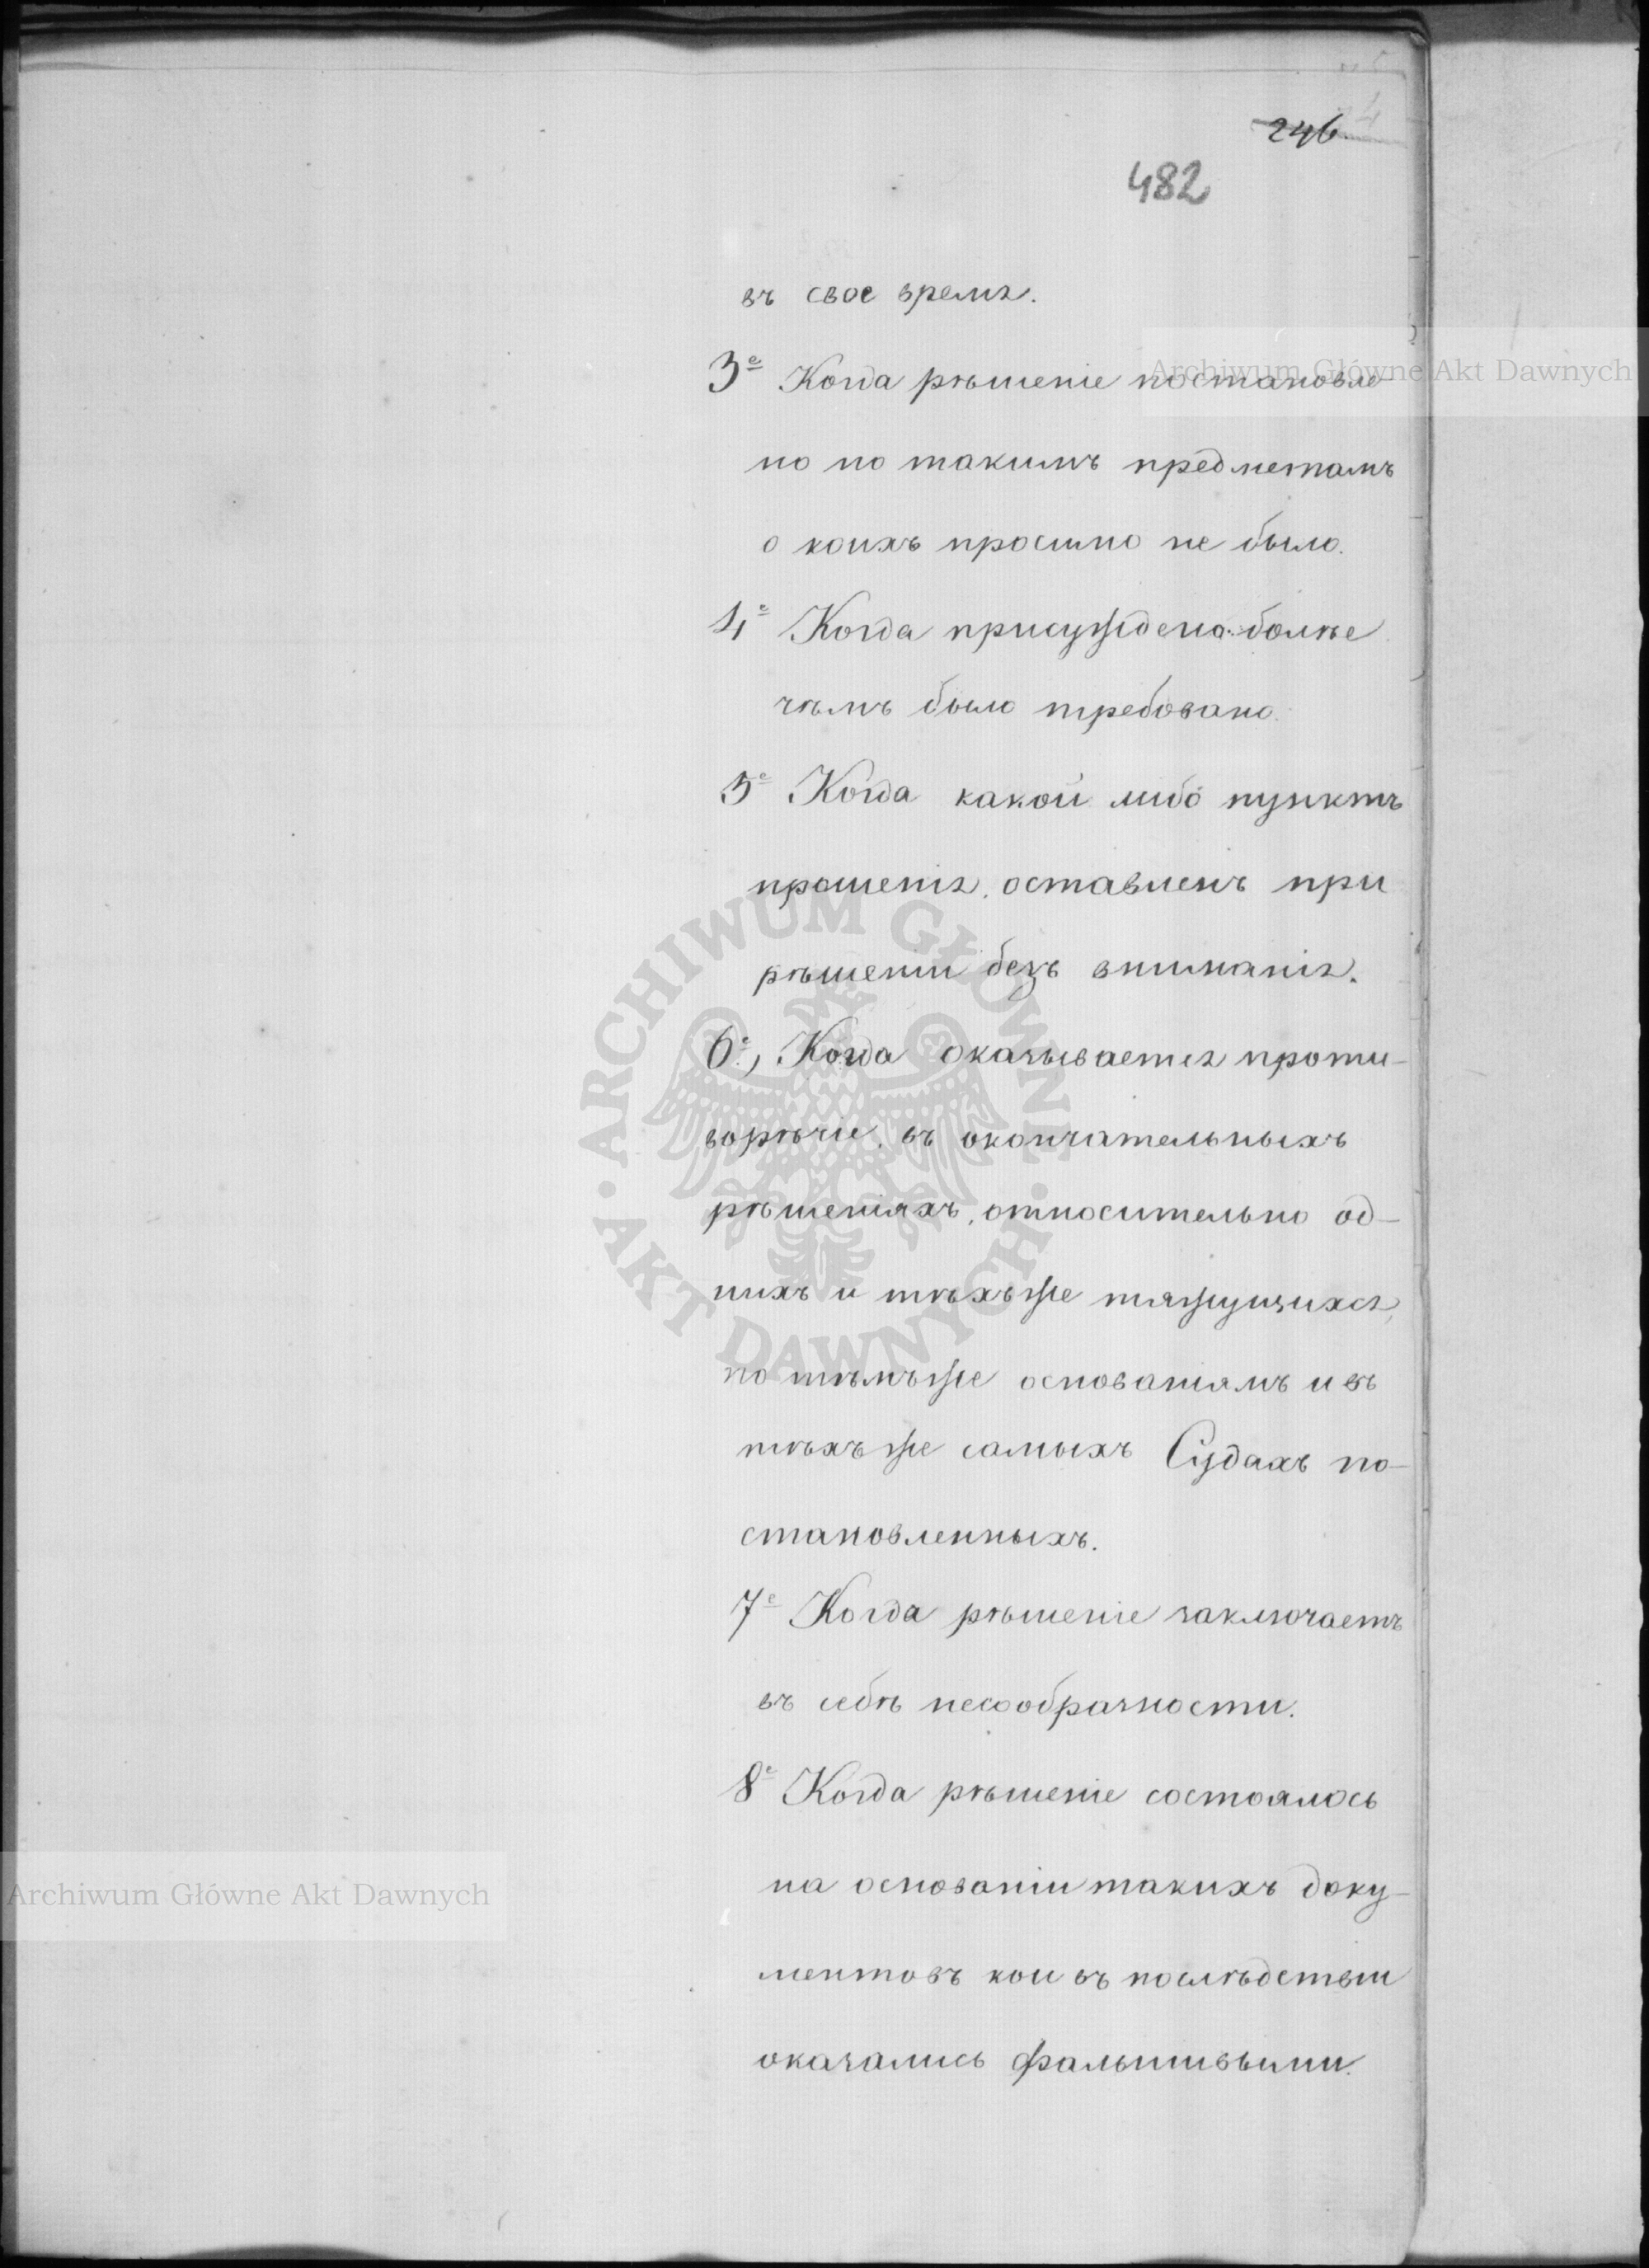 246.
482
въ свое время.
3е Когда рѣшеніе постановле-
но по такимъ предметамъ
о коихъ прошено не было.
4е Когда присуждено болѣе
чѣмъ было требовано.
5е Когда какой либо пунктъ
прошенія, оставленъ при
рѣшеніи безъ вниманія.
6е, Когда оказывается проти-
ворѣчіе, въ окончательныхъ
рѣшеніяхъ, относительно од-
нихъ и тѣхъ же тяжущихся,
по тѣмъ же основаніямъ и въ
тѣхъ же самыхъ Судахъ по-
становленныхъ.
7е Когда рѣшеніе заключаетъ
въ себѣ несообразности.
8е Когда рѣшеніе состоялось
на основаніи такихъ доку-
ментовъ кои въ послѣдствіи
оказались фальшивыми.
Archiwum Główne Akt Dawnych
ARCHIWUM GŁÓWNE · AKT DAWNYCH ·
Archiwum Główne Akt Dawnych